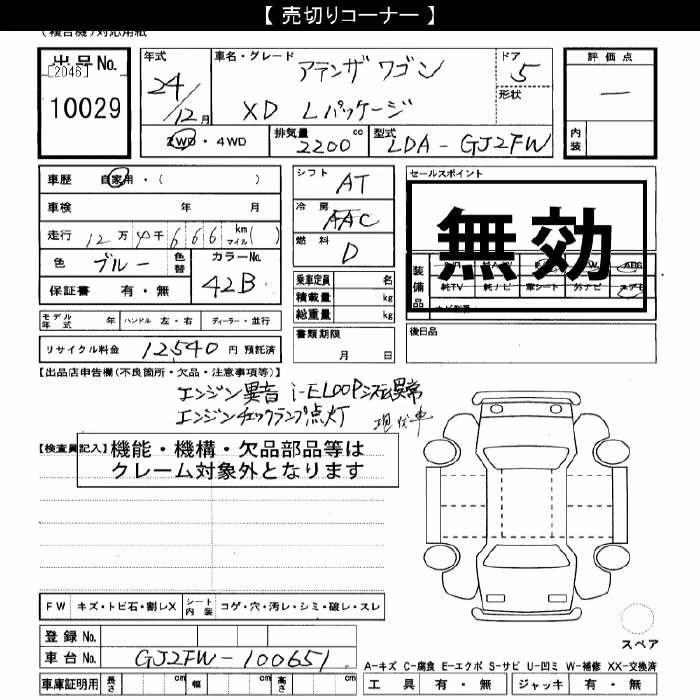 【 売切りコーナー 】
(複合機)対応用紙
出品No.
[2046]
10029
年式
24/12月
車名・グレード
アテンザ ワゴン
XD Lパッケージ
ドア
5
形状
2WD・4WD
排気量
2200cc
型式
LDA-GJ2FW
評価点
ー
内装
車歴 自家用・( )
車検 年 月
走行 12万4千666 km マイル( )
色 ブルー 色替
カラーNo.
42B
保証書 有・無
モデル年式 年 ハンドル 左・右 ディーラー・並行
リサイクル料金 12,540 円 預託済
シフト AT
冷房 AAC
燃料 D
乗車定員 名
積載量 kg
総重量 kg
書類期限
月 日
セールスポイント
無効
装備品
純TV 純ナビ 革シート 外ナビ エアB
後日品
【出品店申告欄(不良箇所・欠品・注意事項等)】
エンジン異音 i-ELOOPシステム異常
エンジンチェックランプ点灯 現状車
【検査員記入】
機能・機構・欠品部品等は
クレーム対象外となります
FW キズ・トビ石・割レX シート内装 コゲ・穴・汚レ・シミ・破レ・スレ
登録No.
車台No. GJ2FW-100651
車庫証明用 長さ cm 幅 cm 高さ cm
スペア
A-キズ C-腐食 E-エクボ S-サビ U-凹ミ W-補修 XX-交換済
工具 有・無 ジャッキ 有・無